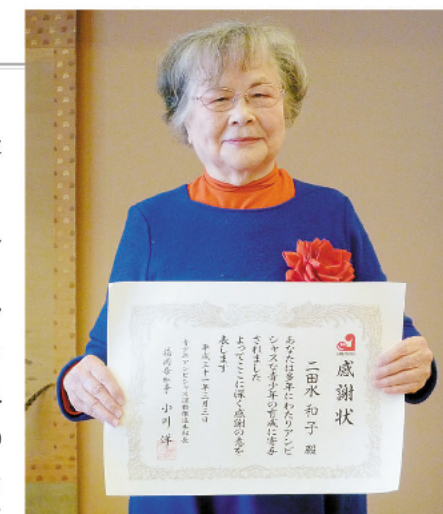 感謝状
二田水 和子 殿
あなたは多年にわたりアンビ
シャスな青少年の育成に寄与
されました
よってここに深く感謝の意を
表します
平成三十一年二月三日
青少年アンビシャス運動推進本部長
福岡県知事 小川 洋